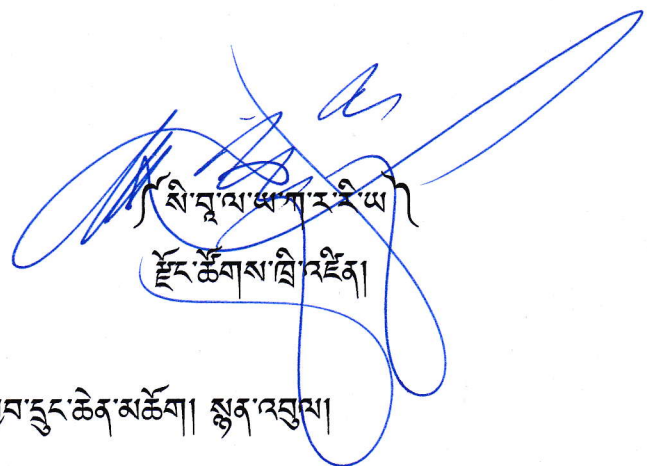 ༼སི་བྷཱ་ལ་ཡ་ག་ར་རི་ཡ༽
རྫོང་ཚོགས་ཁྲི་འཛིན།
དྲུང་ཆེན་མཆོག། སྙན་འབུལ།